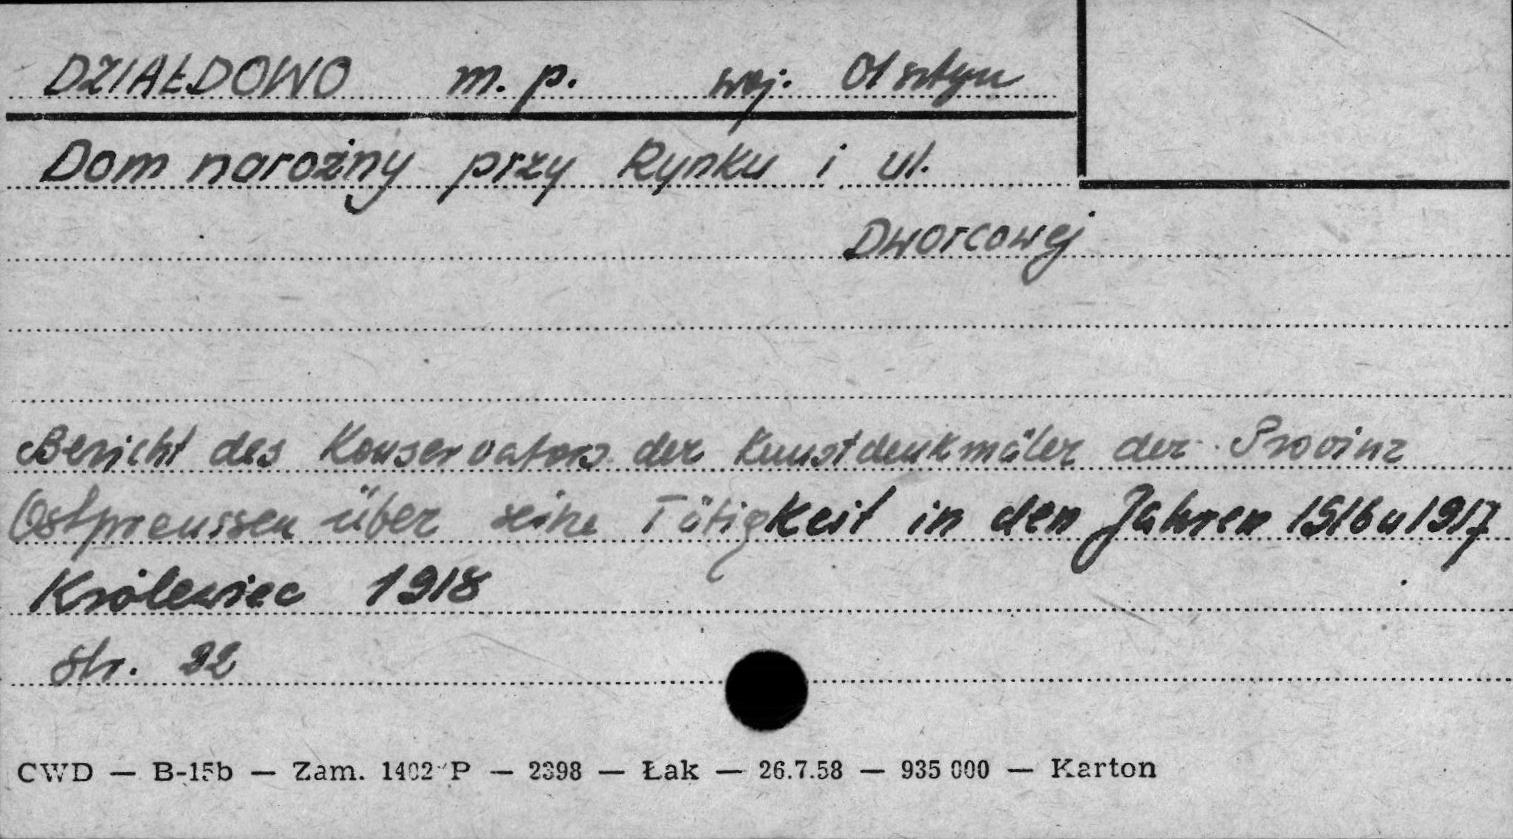 DZIAŁDOWO m. p. woj. Olsztyn
Dom narożny przy Rynku i ul.
Dworcowej
Bericht des Konservators der Kunstdenkmäler der Provinz
Ostpreussen über seine Tätigkeit in den Jahren 1916 u 1917
Królewiec 1918
str. 22
CWD — B-15b — Zam. 1402 P — 2398 — Łak — 26.7.58 — 935 000 — Karton